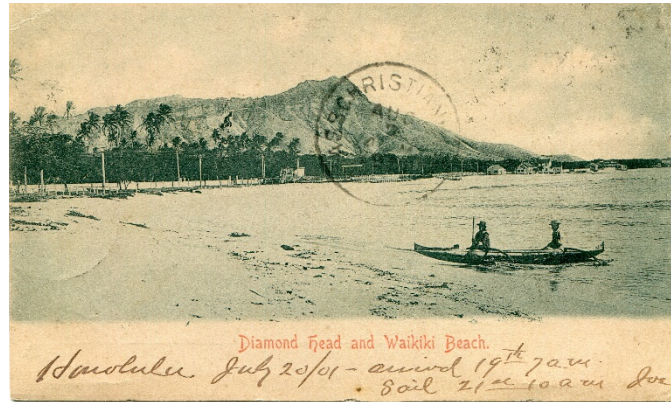 CHRISTIAN
AU
Diamond Head and Waikiki Beach.
Honolulu July 20/01 - arrived 19th 7 a.m.
Sail 21st 10 am for